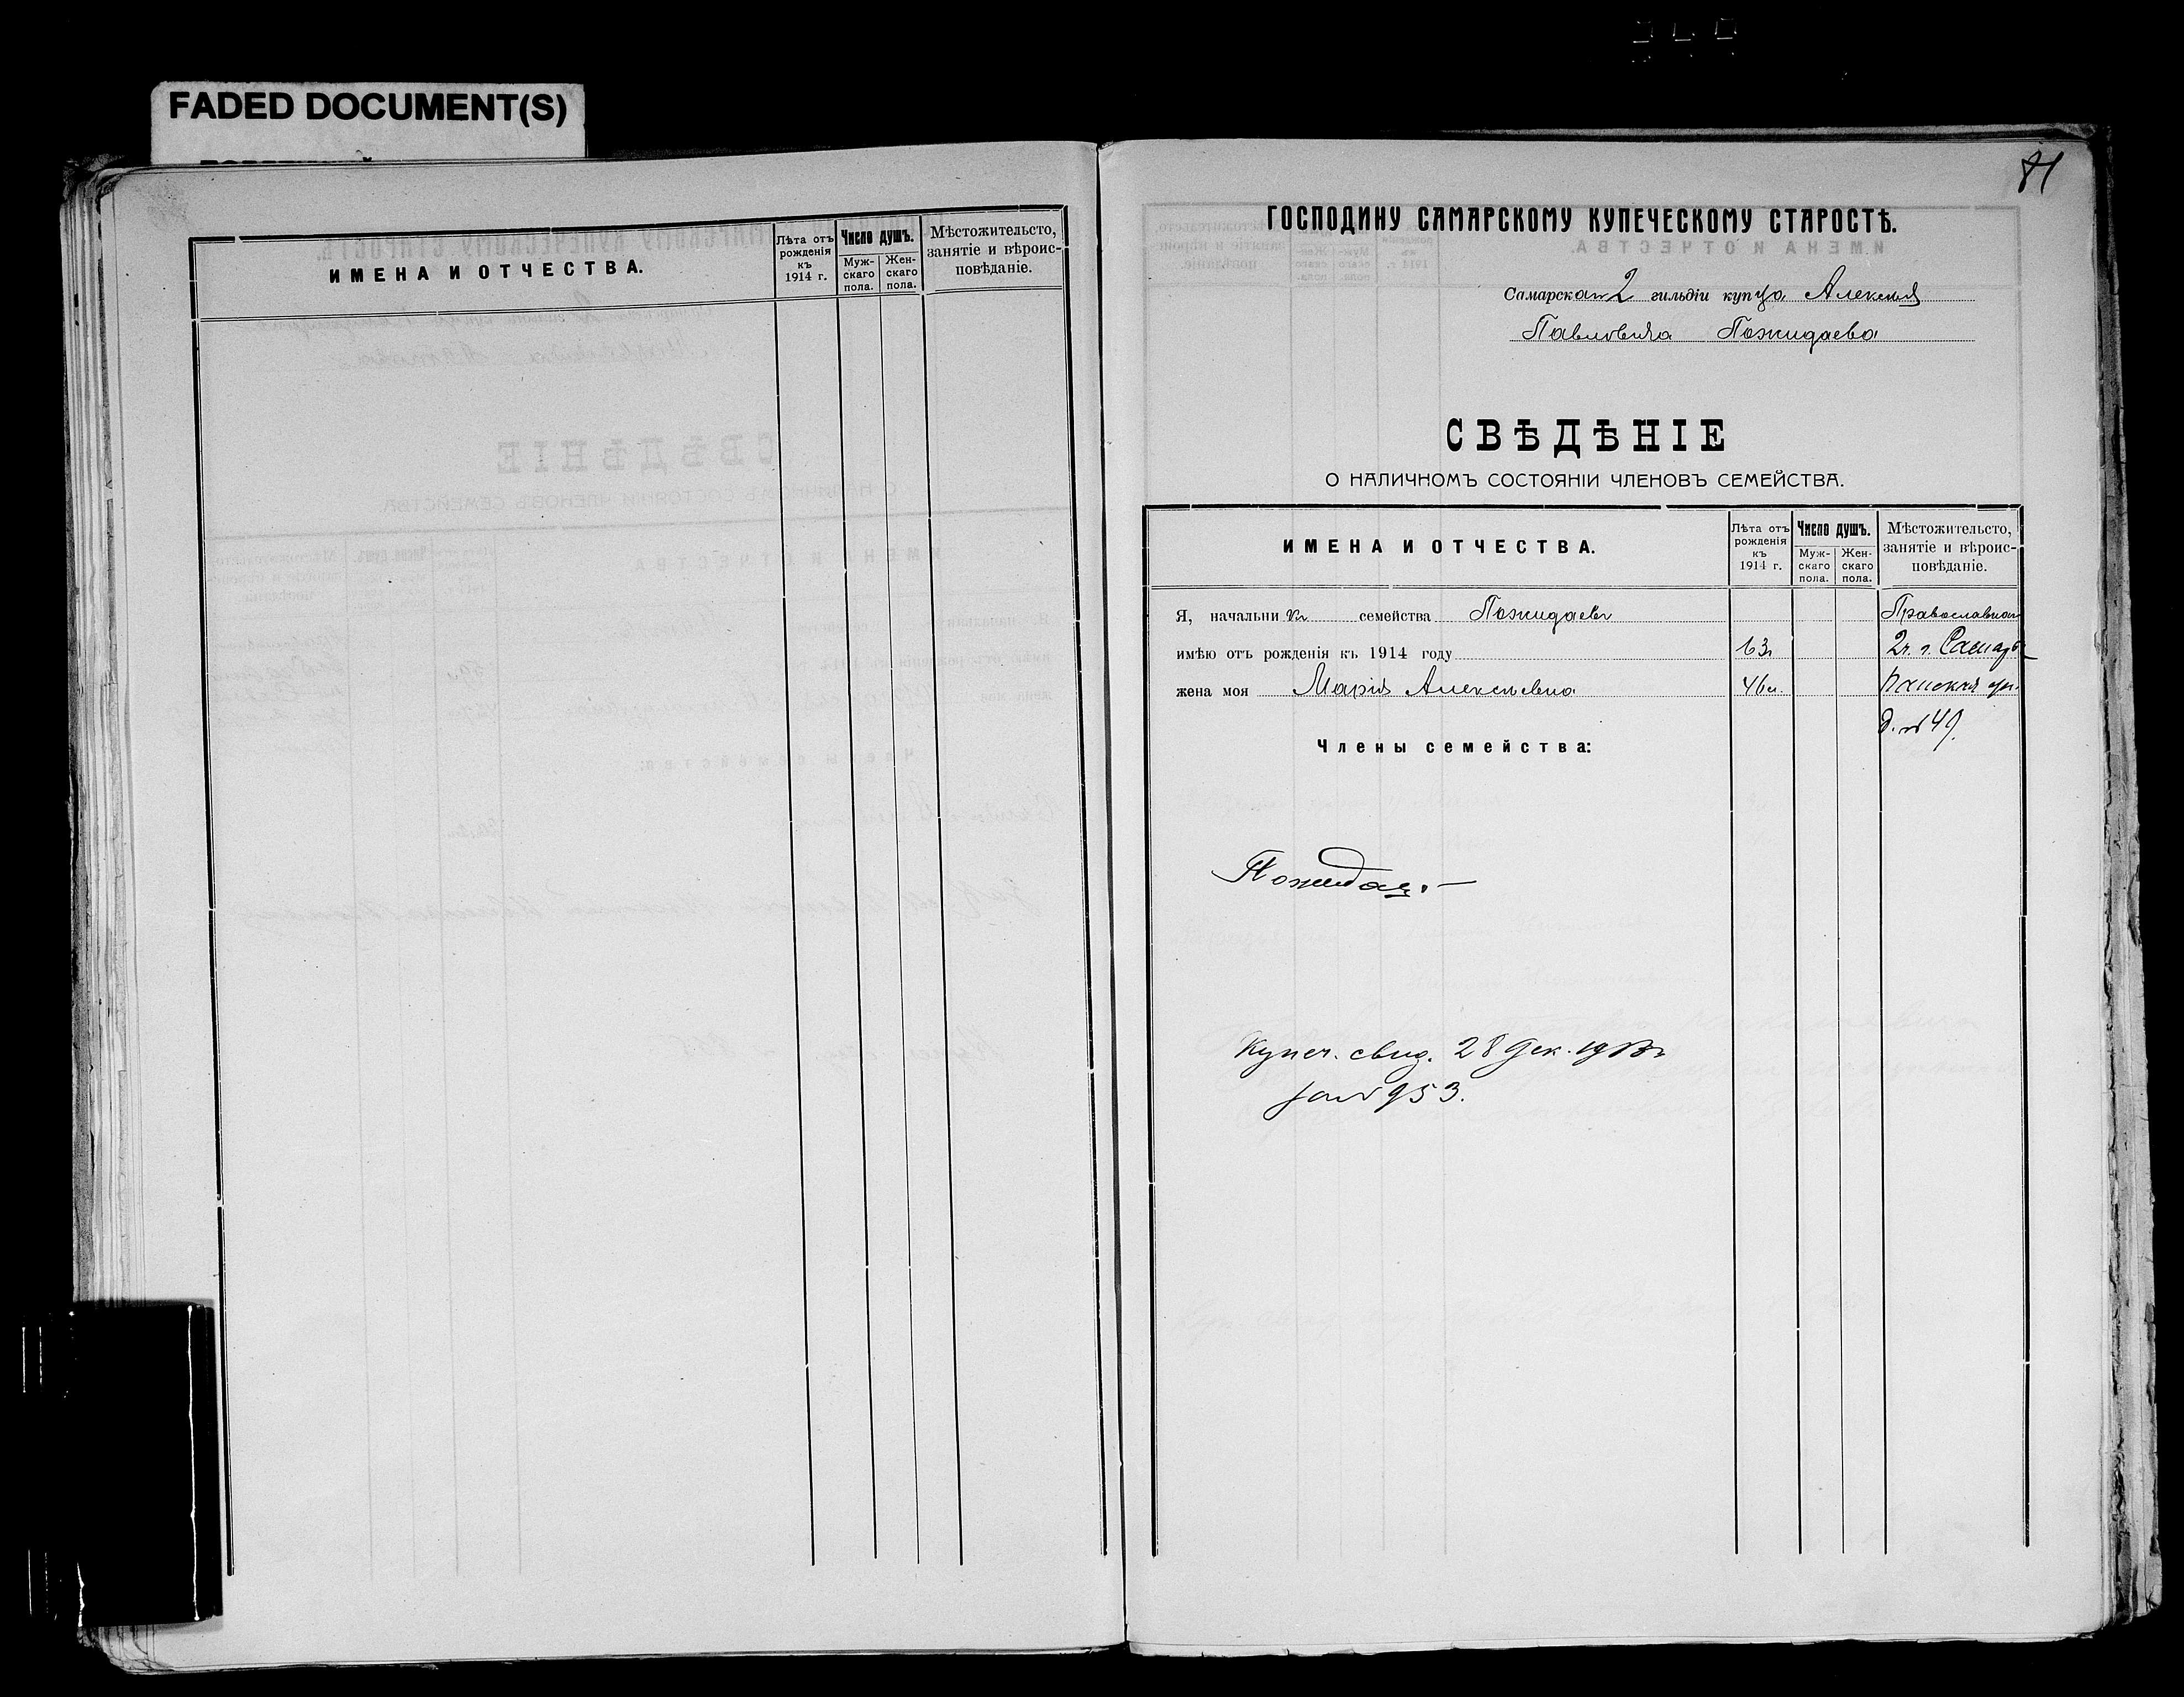 FADED DOCUMENT(S)
ИМЕНА И ОТЧЕСТВА.
Лѣта отъ рожденія къ 1914 г.
Число душъ.
Муж-скаго пола.
Жен-скаго пола.
Мѣстожительсто, занятіе и вѣроис-повѣданіе.
81
ГОСПОДИНУ САМАРСКОМУ КУПЕЧЕСКОМУ СТАРОСТѢ.
Самарскаго 2 гильдіи купца Алексѣя
Павловича Пожидаева
СВѢДѢНІЕ
О НАЛИЧНОМЪ СОСТОЯНІИ ЧЛЕНОВЪ СЕМЕЙСТВА.
ИМЕНА И ОТЧЕСТВА.
Лѣта отъ рожденія къ 1914 г.
Число душъ.
Муж-скаго пола.
Жен-скаго пола.
Мѣстожительсто, занятіе и вѣроис-повѣданіе.
Я, начальникъ семейства Пожидаевъ Православнаго
имѣю отъ рожденія къ 1914 году 63 2ч. г. Самары
жена моя Марія Алексѣевна 46 л. Панская ул.
д. № 49.
Члены семейства:
Купеч. свид. 28 Дек. 1913г
за № 953.